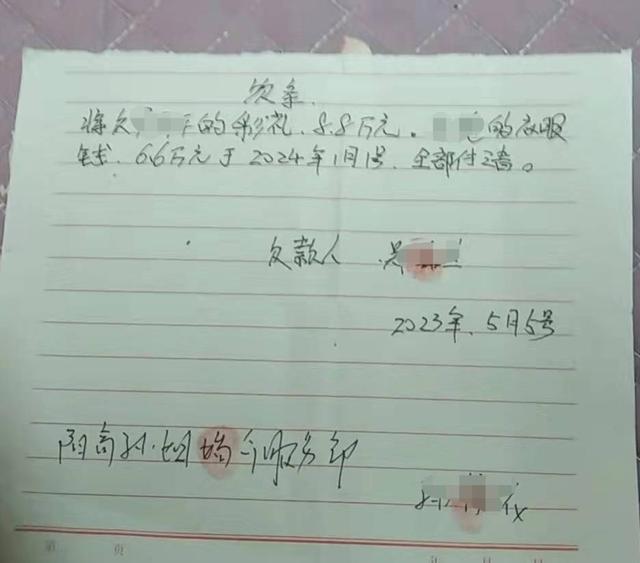 欠条.
将欠 的彩礼.8.8万元. 的衣服
钱.6.6万元于2024年1月1号.全部付清。
欠款人 吴
2023年.5月5号
阳高孙.姐婚介服务部
第 页
年 月 日